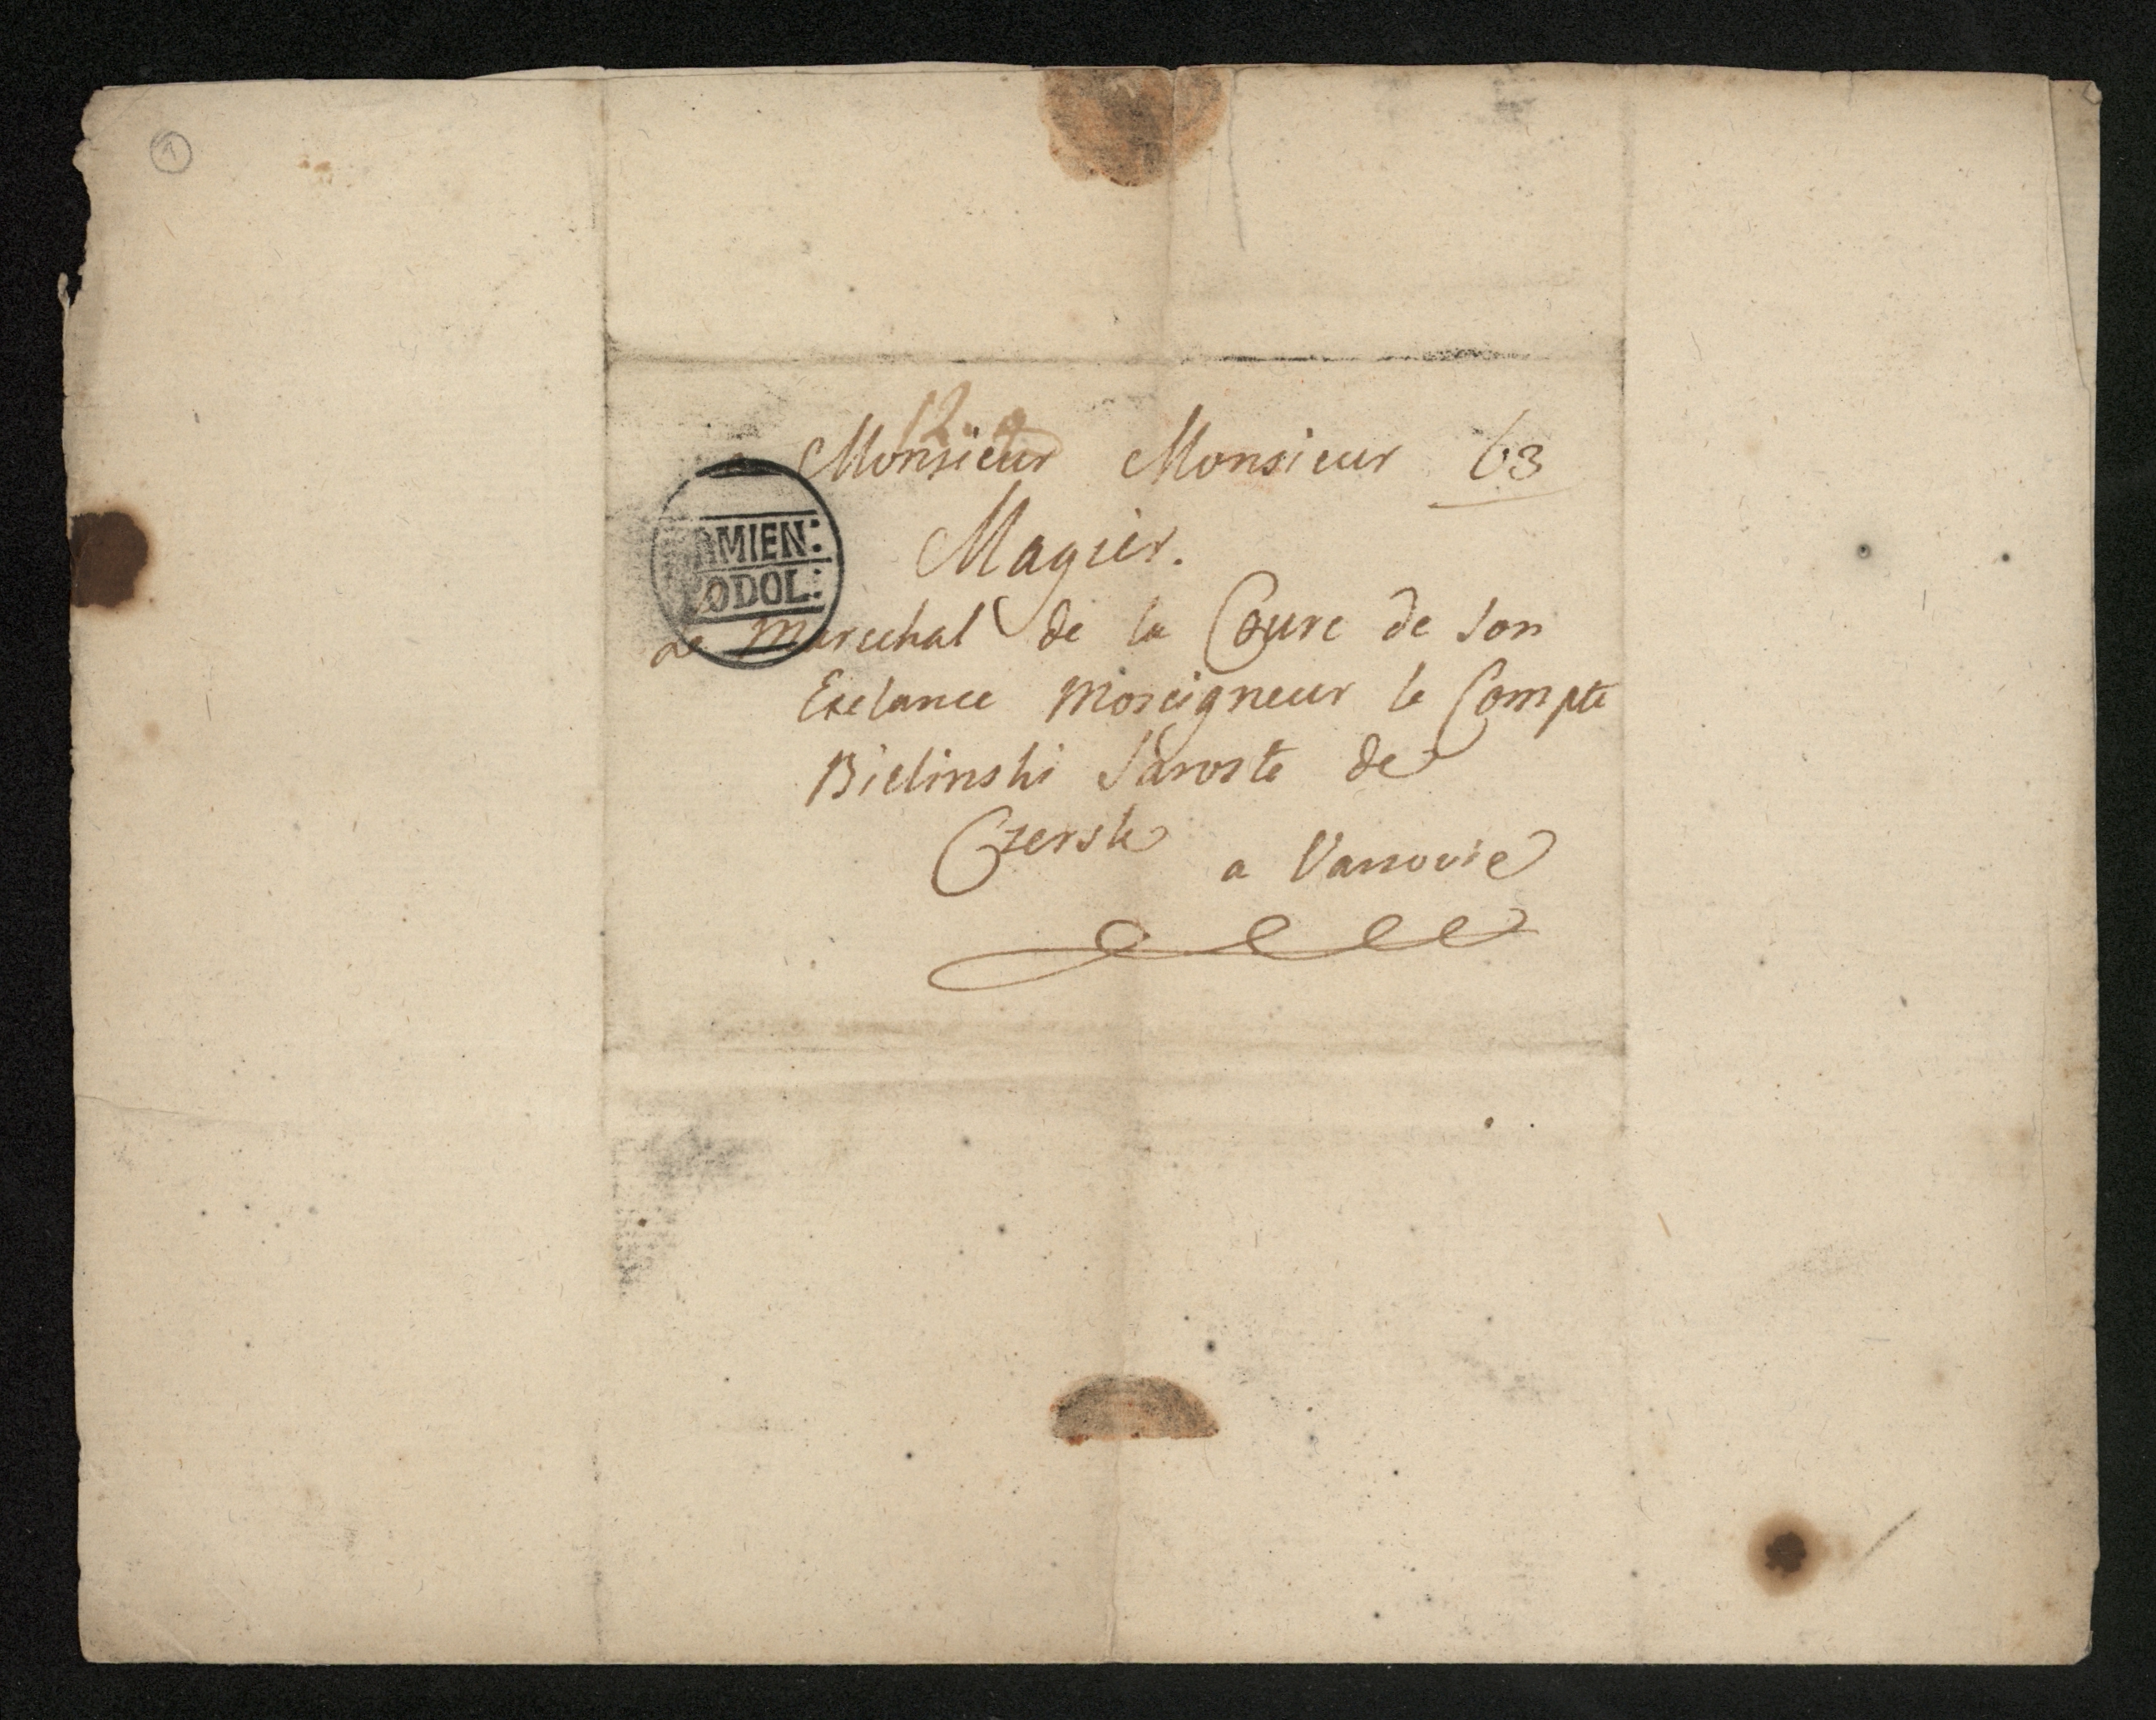 1
12.
a Monsieur Monsieur 63
Magier.
AMIEN:
PODOL:
de Marechal de la Coure de Son
Exelance Moseigneur le Compte
Bielinski Staroste de
Czersk
a Varsovie